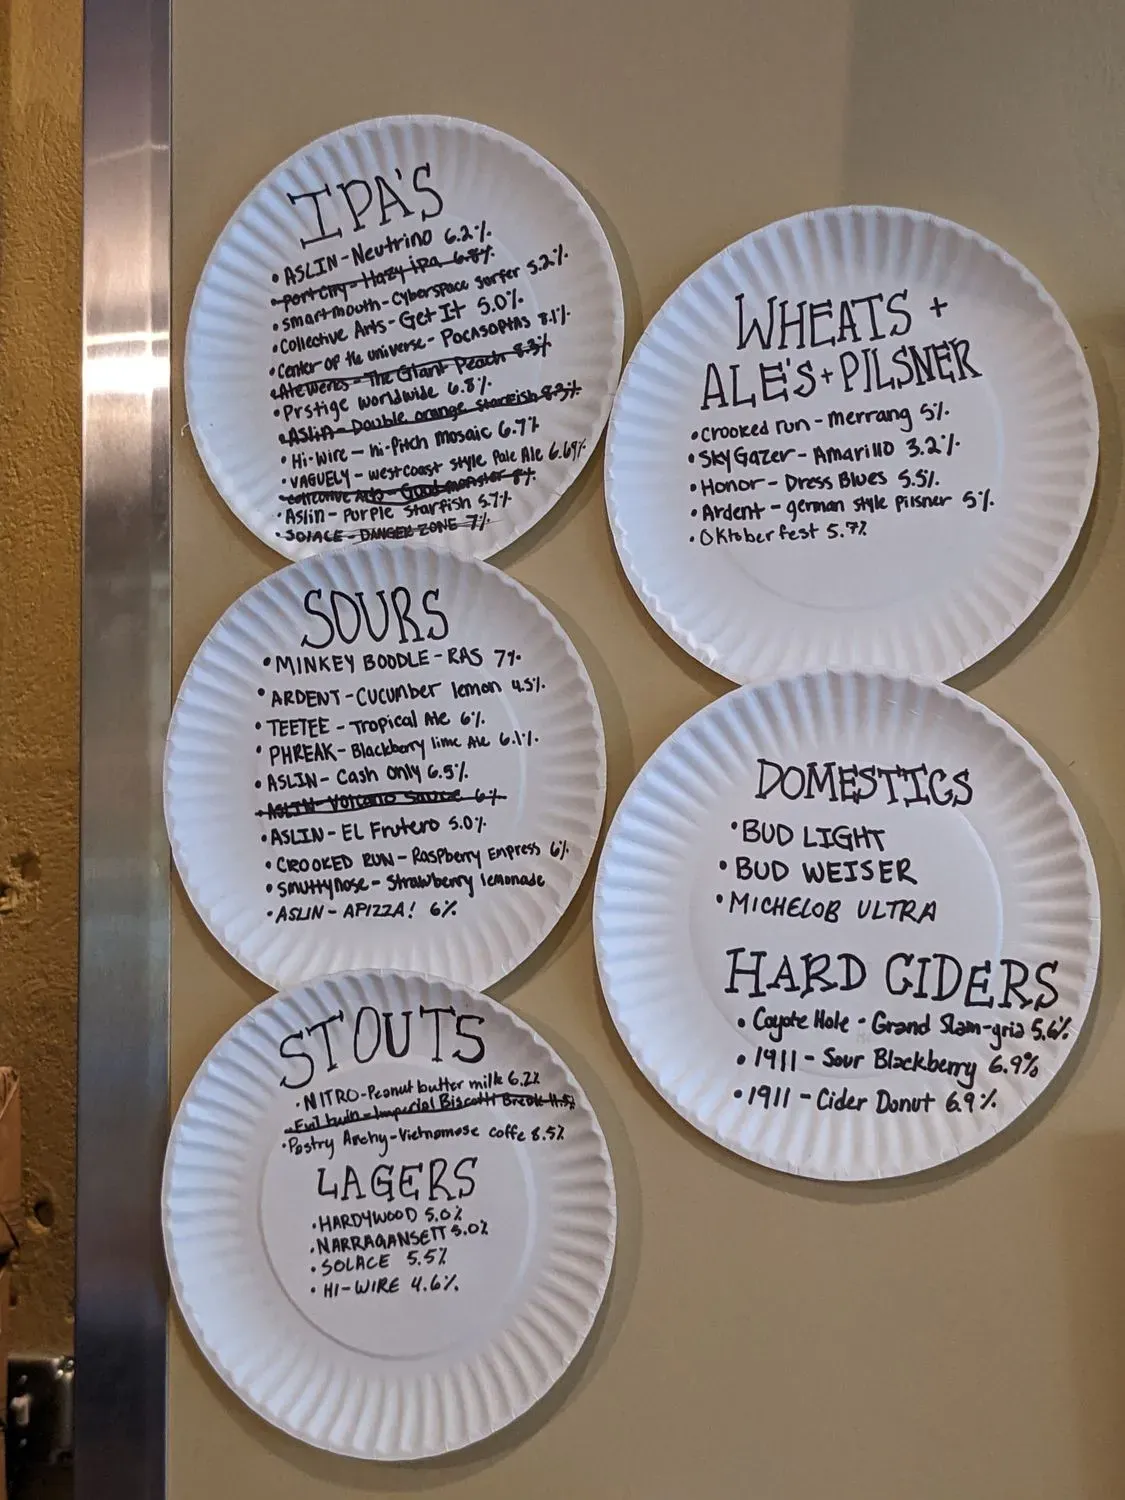 IPA'S
• ASLIN - Neutrino 6.2%
• Port City - Hazy ipa 6.8%
• smartmouth - Cyberspace surfer 5.2%
• Collective Arts - Get It 5.0%
• Center of the universe - Pocasoptas 8.1%
• Ate Weres - The Giant Peach 8.3%
• Prstige worldwide 6.8%
• ASLIN - Double orange Starfish 8.3%
• Hi-Wire - hi-Pitch mosaic 6.7%
• VAGUELY - westcoast style Pale Ale 6.69%
• Collective Arts - Good monster 8%
• Aslin - Purple Starfish 5.7%
• SOlACE - DANGER ZONE 7%
SOURS
• MINKEY BOODLE - RAS 7%
• ARDENT - Cucumber lemon 4.5%
• TEETEE - Tropical Ale 6%
• PHREAK - Blackberry lime Ale 6.1%
• ASLIN - Cash Only 6.5%
• ASLIN - Volcano Sauce 6%
• ASLIN - EL Frutero 5.0%
• CROOKED RUN - Raspberry Empress 6%
• Smuttynose - Strawberry lemonade
• ASLIN - APIZZA! 6%
STOUTS
• NITRO - Peanut butter milk 6.2%
• Evil twin - Imperial Biscotti Break 11.5%
• Pastry Archy - Vietnamose coffe 8.5%
LAGERS
• HARDYWOOD 5.0%
• NARRAGANSETT 5.0%
• SOLACE 5.5%
• HI-WIRE 4.6%
WHEATS +
ALE'S + PILSNER
• Crooked run - merrang 5%
• Sky Gazer - Amarillo 3.2%
• Honor - Dress Blues 5.5%
• Ardent - german style Pilsner 5%
• Oktoberfest 5.9%
DOMESTICS
• BUD LIGHT
• BUD WEISER
• MICHELOB ULTRA
HARD CIDERS
• Coyote Hole - Grand Slam-gria 5.6%
• 1911 - Sour Blackberry 6.9%
• 1911 - Cider Donut 6.9%